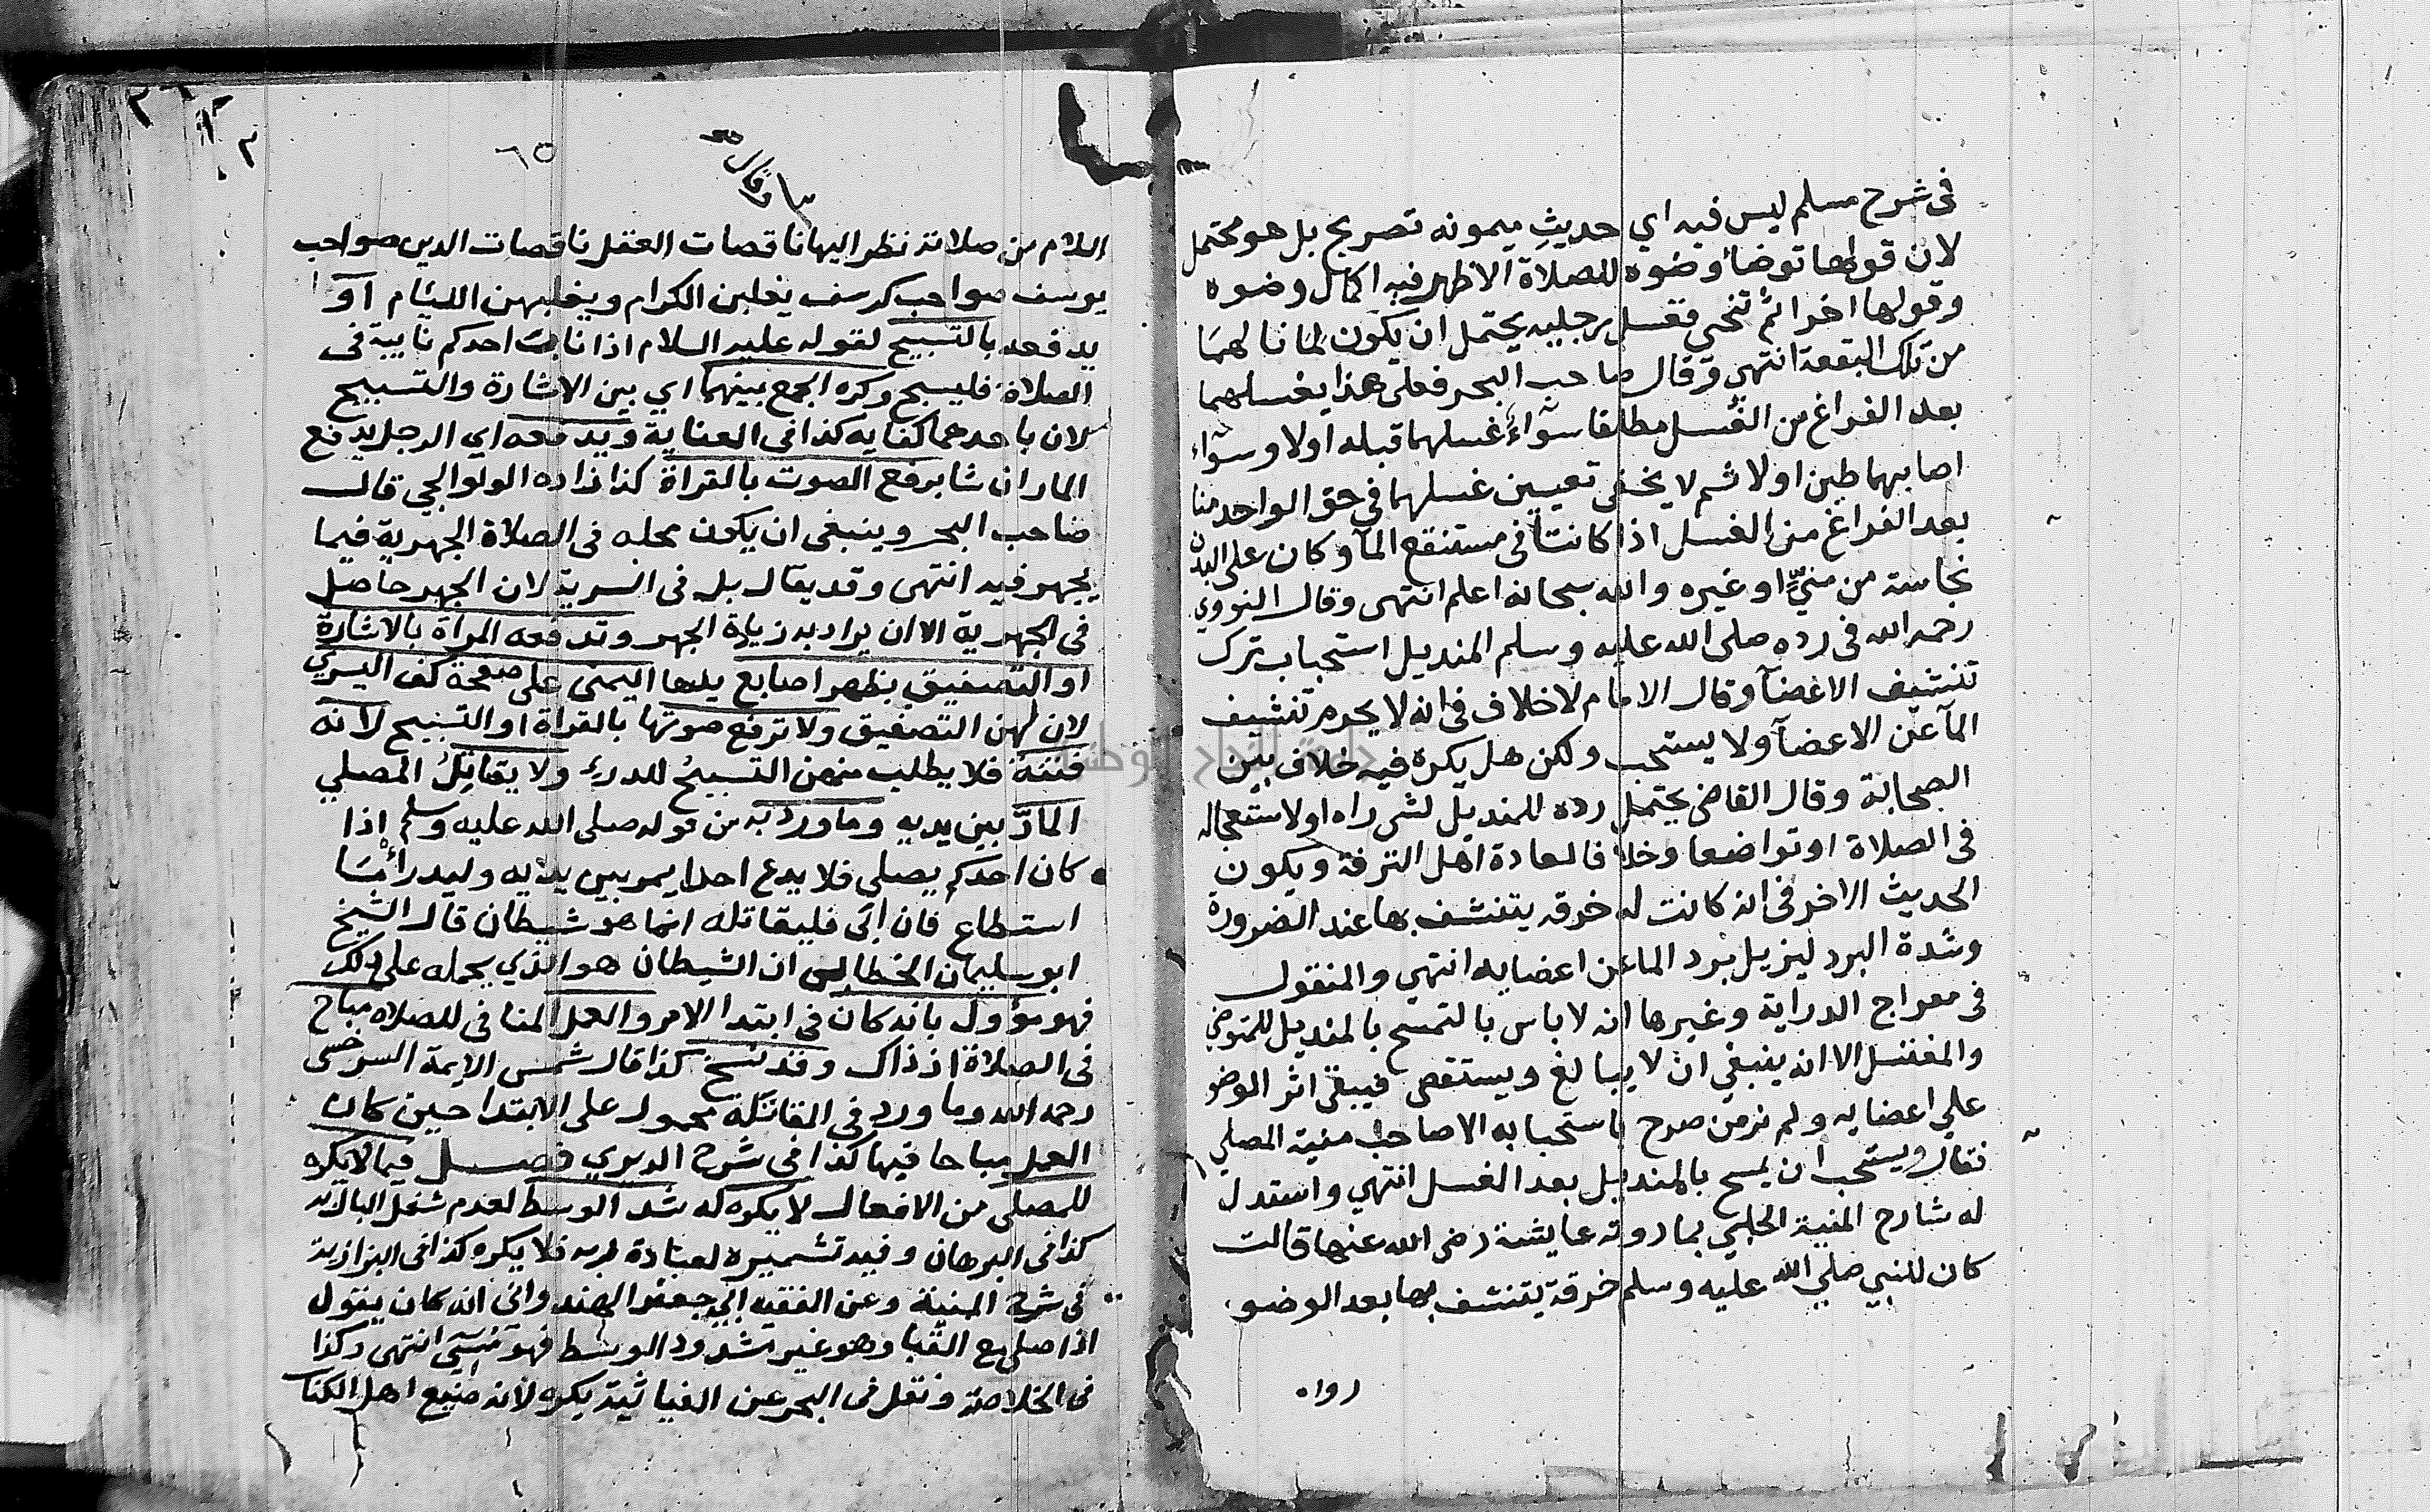 في شرح مسلم ليس فيه اي حديث ميمونه تصريح بل هو محتمل
لان قولها توضأ وضوه للصلاة الاظهر فيه اكمال وضوه
وقولها اخرا ثم تنحى فغسل رجليه يحتمل ان يكون لما نالهما
من تلك البقعة انتهى وقال صاحب البحر فعلى هذا يغسلهما
بعد الفراغ من الغسل مطلقا سوآء غسلهما قبله اولا وسوآء
اصابهما طين اولا ثم لا يخفى تعيين غسلهما في حق الواحد منا
بعد الفراغ من الغسل اذا كانتا في مستنقع المآ وكان على البدن
نجاسة من منيٍّ او غيره والله سبحانه اعلم انتهى وقال النووي
رحمه الله في رده صلى الله عليه وسلم المنديل استحباب ترك
تنشيف الاعضآ وقال الامام لا خلاف في انه لا يحرم تنشيف
المآ عن الاعضآ ولا يستحب ولكن هل يكره فيه خلاف بين
الصحابة وقال القاضي يحتمل رده للمنديل لشي راه او لاستعجاله
في الصلاة او تواضعا وخلافا لعادة اهل الترفه ويكون
الحديث الاخر في انه كانت له خرقه يتنشف بها عند الضرورة
وشدة البرد ليزيل برد الما عن اعضايه انتهى والمنقول
في معراج الدراية وغيرها انه لا باس بالتمسح بالمنديل للمتوضي
والمغتسل الا انه ينبغي ان لا يبالغ ويستقصى فيبقى اثر الوضو
على اعضايه ولم نر من صرح باستحبابه الا صاحب منية المصلي
فقال ويستحب ان يمسح بالمنديل بعد الغسل انتهى واستدل
له شارح المنية الحلبي بما روته عايشة رضى الله عنها قالت
كان للنبي صلى الله عليه وسلم خرقة يتنشف بها بعد الوضو
رواه
٦٥
وقال
السلام من صلاته نظر اليها ناقصات العقل ناقصات الدين صواحب
يوسف صواحب كرسف يغلبن الكرام ويغلبهن اللئام او
يدفعه بالتسبيح لقوله عليه السلام اذا نابت احدكم نايبة في
الصلاة فليسبح وكره الجمع بينهما اي بين الاشارة والتسبيح
لان باحدهما كفايه كذا في العناية ويدفعه اي الرجل يدفع
المار ان شا برفع الصوت بالقراة كذا زاده الولوالجي قال
صاحب البحر وينبغى ان يكون محله في الصلاة الجهرية فيما
يجهر فيه انتهى وقد يقال بل في السرية لان الجهر حاصل
في الجهرية الا ان يراد به زيادة الجهر وتدفعه المراة بالاشارة
او التصفيق بظهر اصابع يدها اليمنى على صفحة كف اليسرى
لان لهن التصفيق ولا ترفع صوتها بالقراة او التسبيح لانه
فتنة فلا يطلب منهن التسبيح للدرء ولا يقاتل المصلي
المارّ بين يديه وما ورد به من قوله صلى الله عليه وسلم اذا
كان احدكم يصلي فلا يدع احدا يمر بين يديه وليدرأ ما
استطاع فان ابى فليقاتله انما هو شيطان قال الشيخ
ابو سليمان الخطابي ان الشيطان هو الذي يحمله على ذلك
فهو مؤول بانه كان في ابتدا الامر والعمل المنافي للصلاه مباح
في الصلاة اذ ذاك وقد نسخ كذا قال شمس الايمة السرخسى
رحمه الله وما ورد في المقاتلة محمول على الابتدا حين كان
العمل مباحا فيها كذا في شرح الديري فصل فيما لا يكره
للمصلي من الافعال لا يكره له شد الوسط لعدم شغل البال به
كذا في البرهان وفيه تشميره لعبادة ربه فلا يكره كذا في البزازية
في شرح المنية وعن الفقيه ابي جعفر الهندواني انه كان يقول
اذا صلى مع القبا وهو غير مشدود الوسط فهو مُسيّ انتهى وكذا
في الخلاصة ونقل في البحر عن الغياثية يكره لانه صنيع اهل الكتا